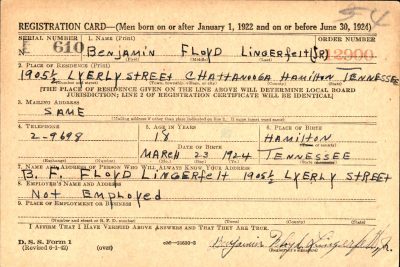 54
REGISTRATION CARD—(Men born on or after January 1, 1922 and on or before June 30, 1924)
SERIAL NUMBER 1. NAME (Print) ORDER NUMBER
610 BENJAMIN FLOYD LINGERFELT (JR) 12900
(First) (Middle) (Last)
2. PLACE OF RESIDENCE (Print)
1905½ LYERLY STREET CHATTANOOGA HAMILTON TENNESSEE
(Number and street) (Town, township, village, or city) (County) (State)
[THE PLACE OF RESIDENCE GIVEN ON THE LINE ABOVE WILL DETERMINE LOCAL BOARD
JURISDICTION; LINE 2 OF REGISTRATION CERTIFICATE WILL BE IDENTICAL]
3. MAILING ADDRESS
SAME
[Mailing address if other than place indicated on line 2. If same insert word same]
4. TELEPHONE 5. AGE IN YEARS 6. PLACE OF BIRTH
2-9698 18 HAMILTON
DATE OF BIRTH (Town or county)
MARCH 23 1924 TENNESSEE
(Mo.) (Day) (Yr.) (State or country)
7. NAME AND ADDRESS OF PERSON WHO WILL ALWAYS KNOW YOUR ADDRESS
B. F. FLOYD LINGERFELT 1905½ LYERLY STREET
8. EMPLOYER'S NAME AND ADDRESS
NOT EMPLOYED
9. PLACE OF EMPLOYMENT OR BUSINESS
(Number and street or R. F. D. number) (Town) (County) (State)
I AFFIRM THAT I HAVE VERIFIED ABOVE ANSWERS AND THAT THEY ARE TRUE.
D. S. S. Form 1
(Revised 6-1-42) (over) Benjamin Floyd Lingerfelt Jr.
(Registrant's signature)